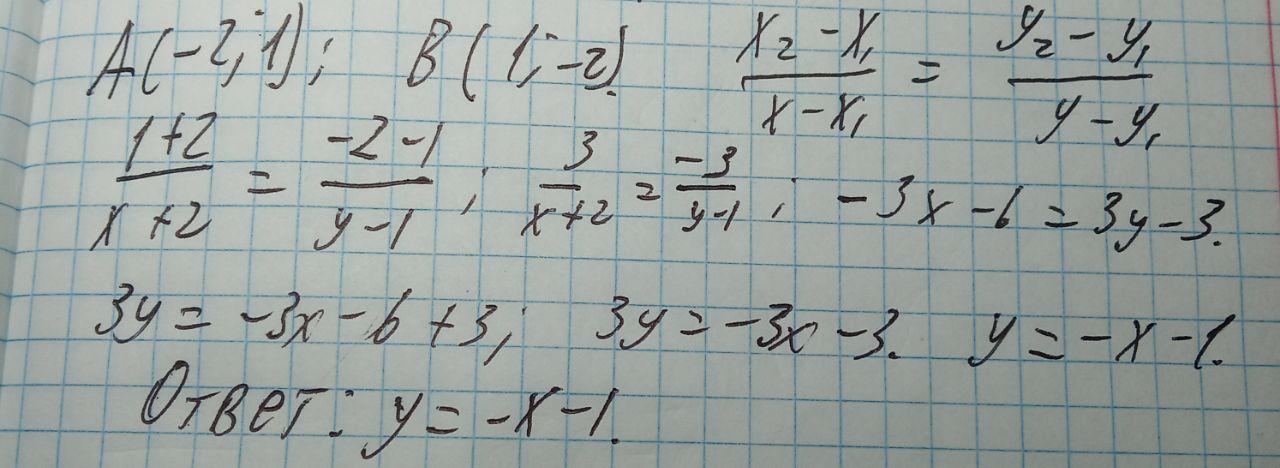 A(-2; 1); B(1; -2). (x₂ - x₁)/(x - x₁) = (y₂ - y₁)/(y - y₁)
(1+2)/(x+2) = (-2-1)/(y-1); 3/(x+2) = -3/(y-1); -3x - 6 = 3y - 3.
3y = -3x - 6 + 3; 3y = -3x - 3. y = -x - 1.
Ответ: y = -x - 1.